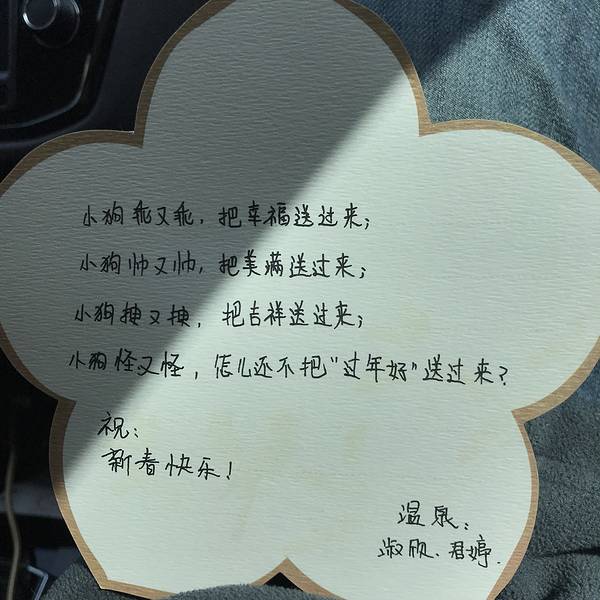 小狗乖又乖，把幸福送过来；
小狗帅又帅，把美满送过来；
小狗拽又拽，把吉祥送过来；
小狗怪又怪，怎儿还不把“过年好”送过来？
祝：
新春快乐！
温泉：
淑欣、君婷.